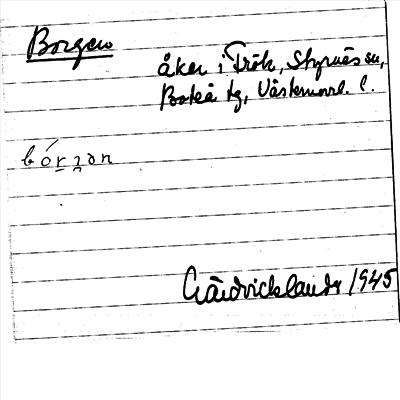 Borgen
åker i Trök, Styrnäs sn,
Boteå tg, Västernorrl. l.
Gärdvicklander 1945